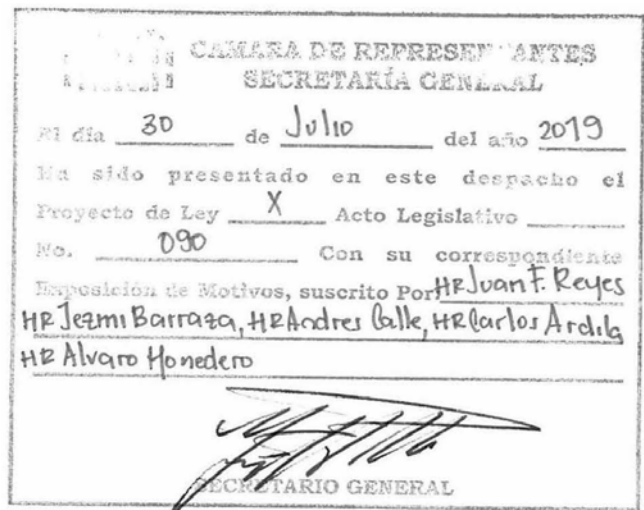 CAMARA DE REPRESENTANTES
SECRETARÍA GENERAL
El día 30 de Julio del año 2019
Ha sido presentado en este despacho el
Proyecto de Ley X Acto Legislativo
No. 090 Con su correspondiente
Exposición de Motivos, suscrito Por HR Juan F. Reyes
HR Jezmi Barraza, HR Andres Calle, HR Carlos Ardila
HR Alvaro Monedero
SECRETARIO GENERAL